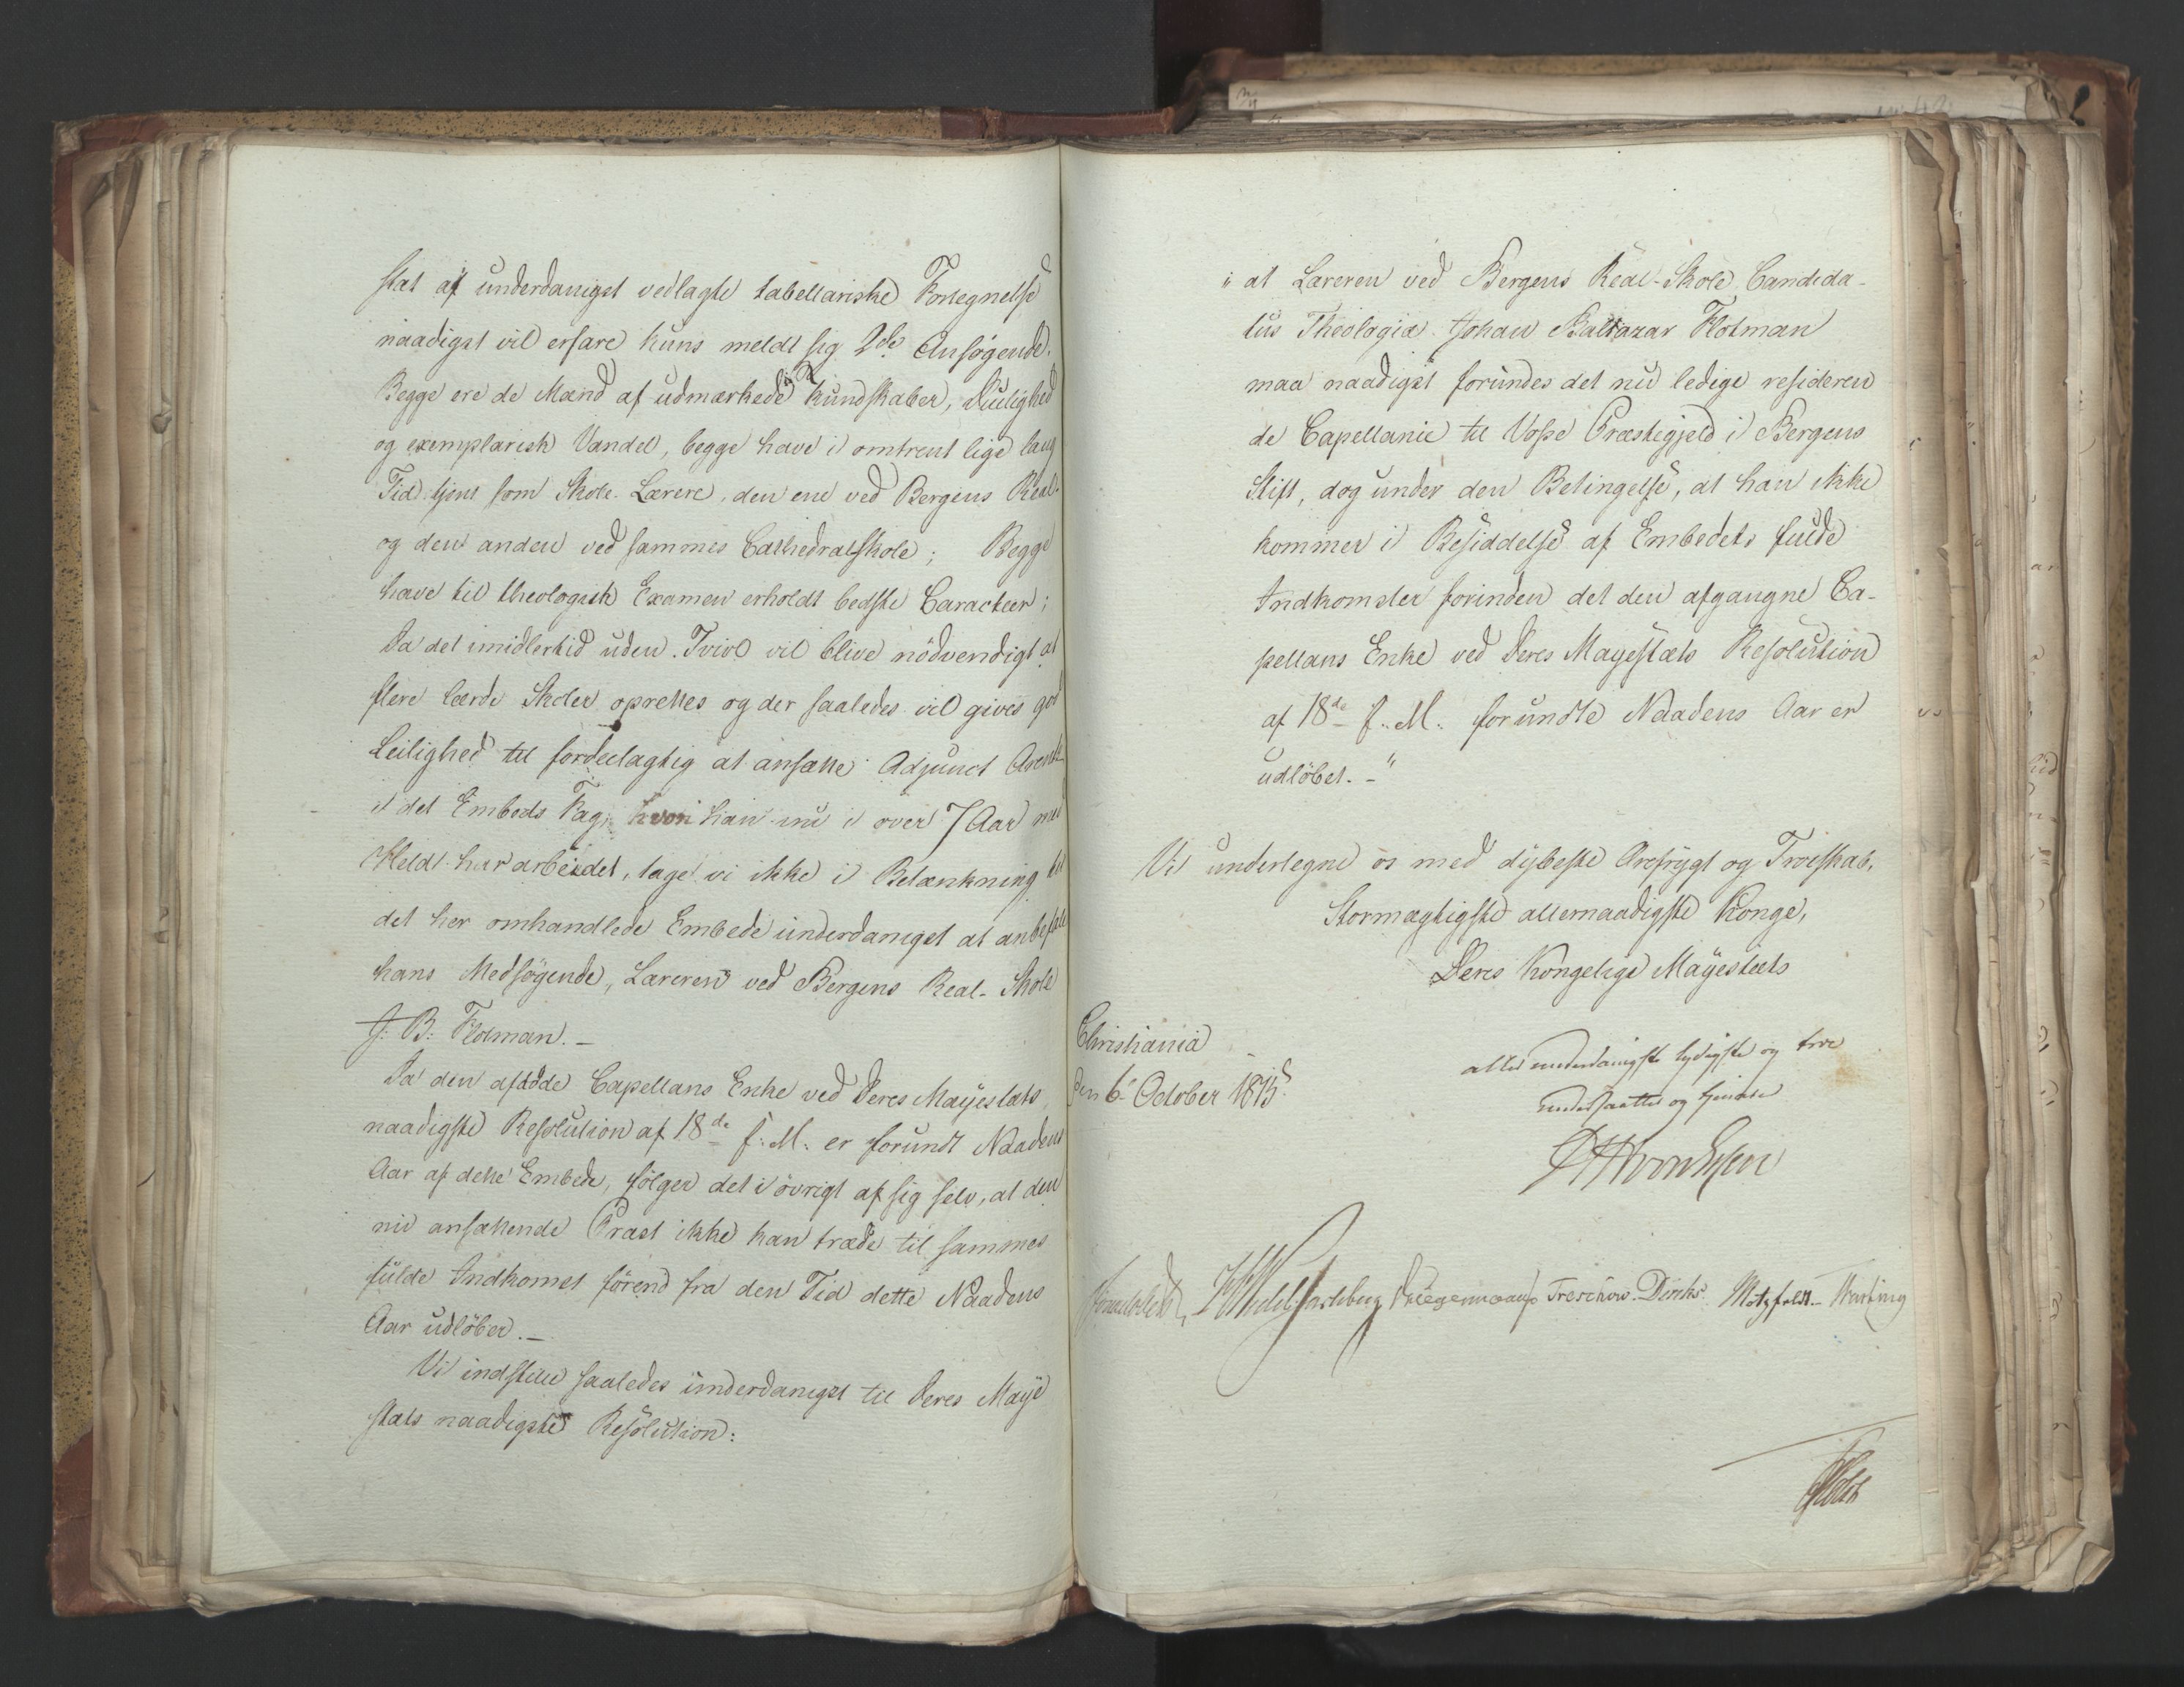 stæt af underdanigst vedlagte tabellariske Fortegnelse
naadigst vil erfare kuns meldt sig 2de Ansøgende.
Begge ere de Mænd af udmærkede Kundskaber, Duelighed
og exemplarisk Vandel, begge have i omtrent lige lang
Tid tjent som Skole-Lærere, den ene ved Bergens Real-
og den anden ved sammes Cathedralskole; Begge
have til theologisk Examen erholdt bedste Caracteer;
Da det imidlertid uden Tvivl vil blive nödvendigt at
flere lærde Skoler oprettes og der saaledes vil gives god
Leilighed til fordeelagtig at ansætte Adjunct
i det Embeds Fag, hvori han nu i over 7 Aar med
Held har arbeidet, tage vi ikke i Betænkning til
det her omhandlede Embede underdanigst at anbefale
hans Medsögende, Læreren ved Bergens Real-Skole
J: B: Flotman. –
Da den afdöde Capellans Enke ved Deres Mayestæts
naadigste Resolution af 18de f. M. er forundt Naadens
Aar af dette Embede, fölger det i övrigt af sig selv, at den
nu ansættende Præst ikke kan træde til sammes
fulde Indkomst förend fra den Tid dette Naadens
Aar udlöber. –
Vi indstille saaledes underdanigst til Deres Maye
stæts naadigste Resolution:
" at Læreren ved Bergens Real-Skole Candida-
tus Theologiæ Johan Baltazar Flotman
maa naadigst forundes det nu ledige resideren
de Capellanie til Vosse Præstegjeld i Bergens
Stift, dog under den Betingelse, at han ikke
kommer i Besiddelse af Embedets fulde
Indkomster forinden det den afgangne Ca-
pellans Enke ved Deres Mayestæts Resolution
af 18de f. M. forundte Naadens Aar er
udlöbet. – "
Vi undertegne os med dybeste Ærefrygt og Troeskab,
Stormægtigste allernaadigste Konge,
Deres Kongelige Mayestæts
Christiania
den 6 October 1815.
allerunderdanigste lydigste og troe
undersaatter og tjenere
von Essen
Sommerhielm, Wedel Jarlsberg Treschow. Diriks. Motzfeldt
Holst